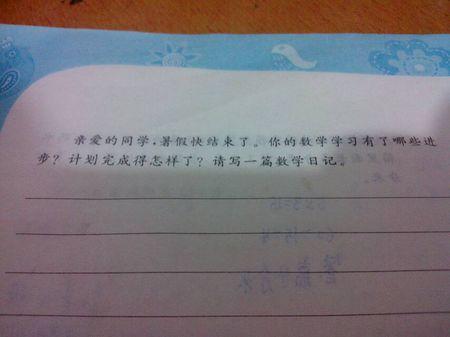 亲爱的同学，暑假快结束了。你的数学学习有了哪些进
步？计划完成得怎样了？请写一篇数学日记。